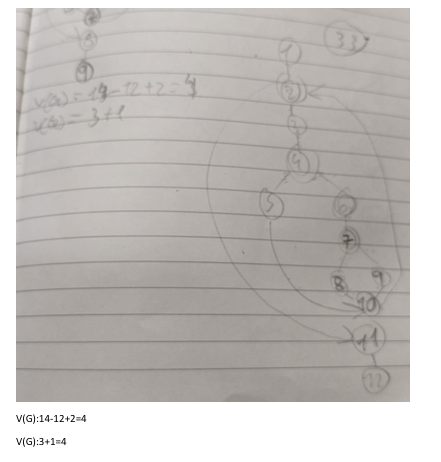 9
V(G) = 14-12+2=4
V(G) = 3+1
33
1
2
3
4
5 6
7
8 9
10
11
12
V(G):14-12+2=4
V(G):3+1=4